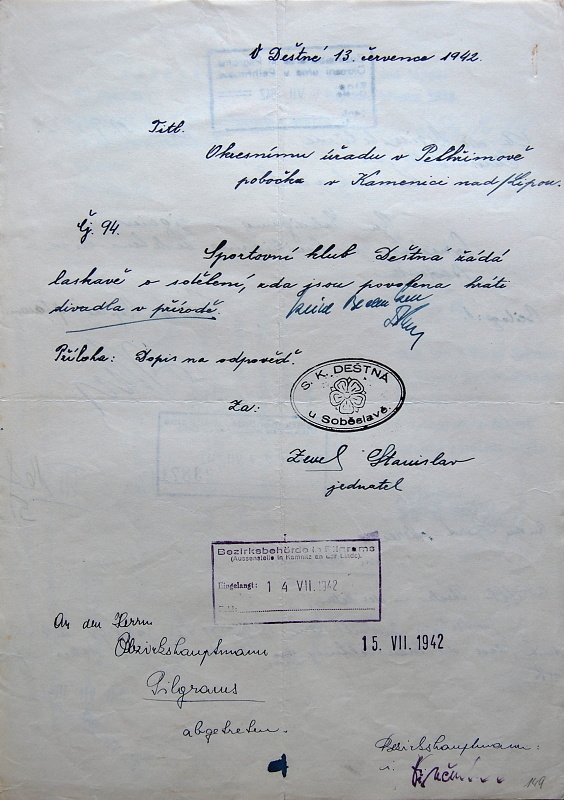 V Deštné 13. července 1942.
Titl.
Okresnímu úřadu v Pelhřimově
pobočka v Kamenici nad/Lipou.
Čj. 94.
Sportovní klub Deštná žádá
laskavě o sdělení, zda jsou povolena hráti
divadla v přírodě.
Keine Bedenken
Příloha: Dopis na odpověď.
S. K. DEŠTNÁ
u Soběslavě.
Za:
Stanislav
jednatel
Bezirksbehörde in Pilgrams
(Aussenstelle in Kamenz an der Linde).
Eingelangt: 14 VII. 1942
An den Herrn
Bezirkshauptmann
15. VII. 1942
Pilgrams
abgetreten.
Bezirkshauptmann:
149